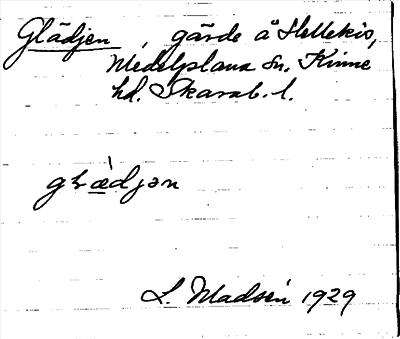 Glädjen, gärde å Hellekis,
Medelplana sn. Kinne
hd. Skarab. l.
L. Madsén 1929